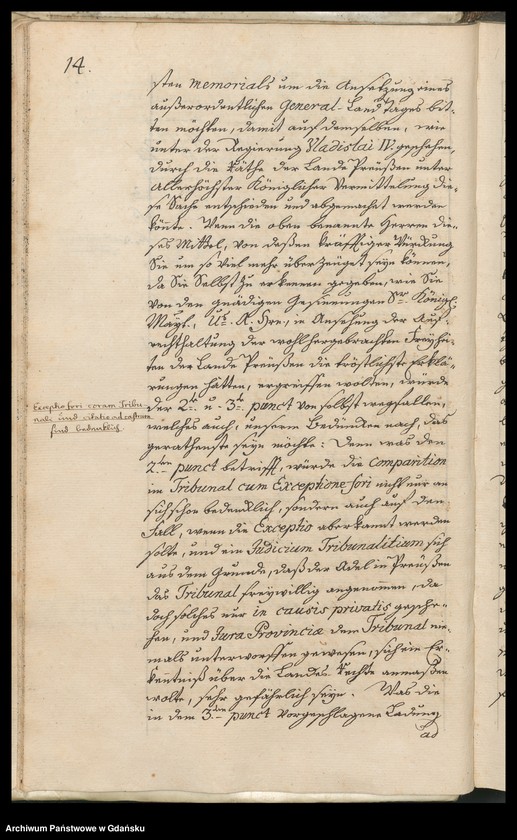 14.
sten Memorials um die Ansetzung eines
außerordentlichen General-Land-Tages bit-
ten möchten, damit auf demselben, wie
unter der Regierung Vladislai IV. geschehen,
durch die Räthe der Lande Preußen unter
Allerhöchster Königlicher Vermittelung die-
se Sache entschieden und abgemachet werden
könte. Wenn die oben benannte Herren die-
ses Mittel, von deßen kräfftiger Würckung
Sie um so viel mehr überzeuget seyn können,
da Sie Selbst zu erkennen gegeben, wie Sie
von den gnädigen Gesinnungen Sr. Königl.
Mayt., Uns. A. Hrn., in Ansehung der Auf-
rechthaltung der wohlhergebrachten Freyhei-
ten der Lande Preußen die tröstlichste Erklä-
rungen hätten, ergreiffen wolten, würde
der 2te u. 3te punct von selbst wegfallen,
welches auch, unserm Bedüncken nach, das
gerathenste seyn möchte: Denn was den
2ten punct betrifft, würde die comparition
in Tribunal cum Exceptione fori nicht nur an
sich schon bedencklich, sondern auch auf den
Fall, wenn die Exceptio aberkannt werden
solte, und ein Judicium Tribunalitium sich
aus dem Grunde, daß der Adel in Preußen
das Tribunal freywillig angenommen, da
doch solches nur in causis privatis gesche-
hen, und Jura Provinciæ dem Tribunal nie-
mals unterworffen gewesen, sich ein Er-
kenntniß über die Landes-Rechte anmaßen
wolte, sehr gefährlich seyn. Was die
in dem 3ten punct vorgeschlagene Ladung
ad
Exceptio fori coram Tribu-
nali und citatio ad
sind bedencklich
Archiwum Państwowe w Gdańsku